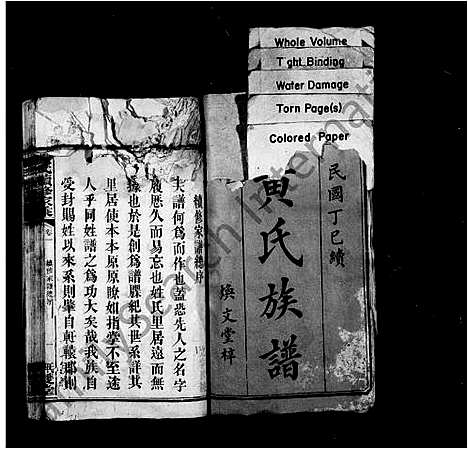 Whole Volume
Tight Binding
Water Damage
Torn Page(s)
Colored Paper
民國丁巳續
黃氏族譜
煥文堂梓
續修家譜總序
夫譜何為而作也蓋恐先人之名字
履歷久而易忘也姓氏里居遠而無
據也於是創為譜牒紀其世系詳其
里居使本本原原瞭如指掌不至迷
人乎同姓譜之為功大矣哉我族自
受封賜姓以來系則肇自軒轅郡則